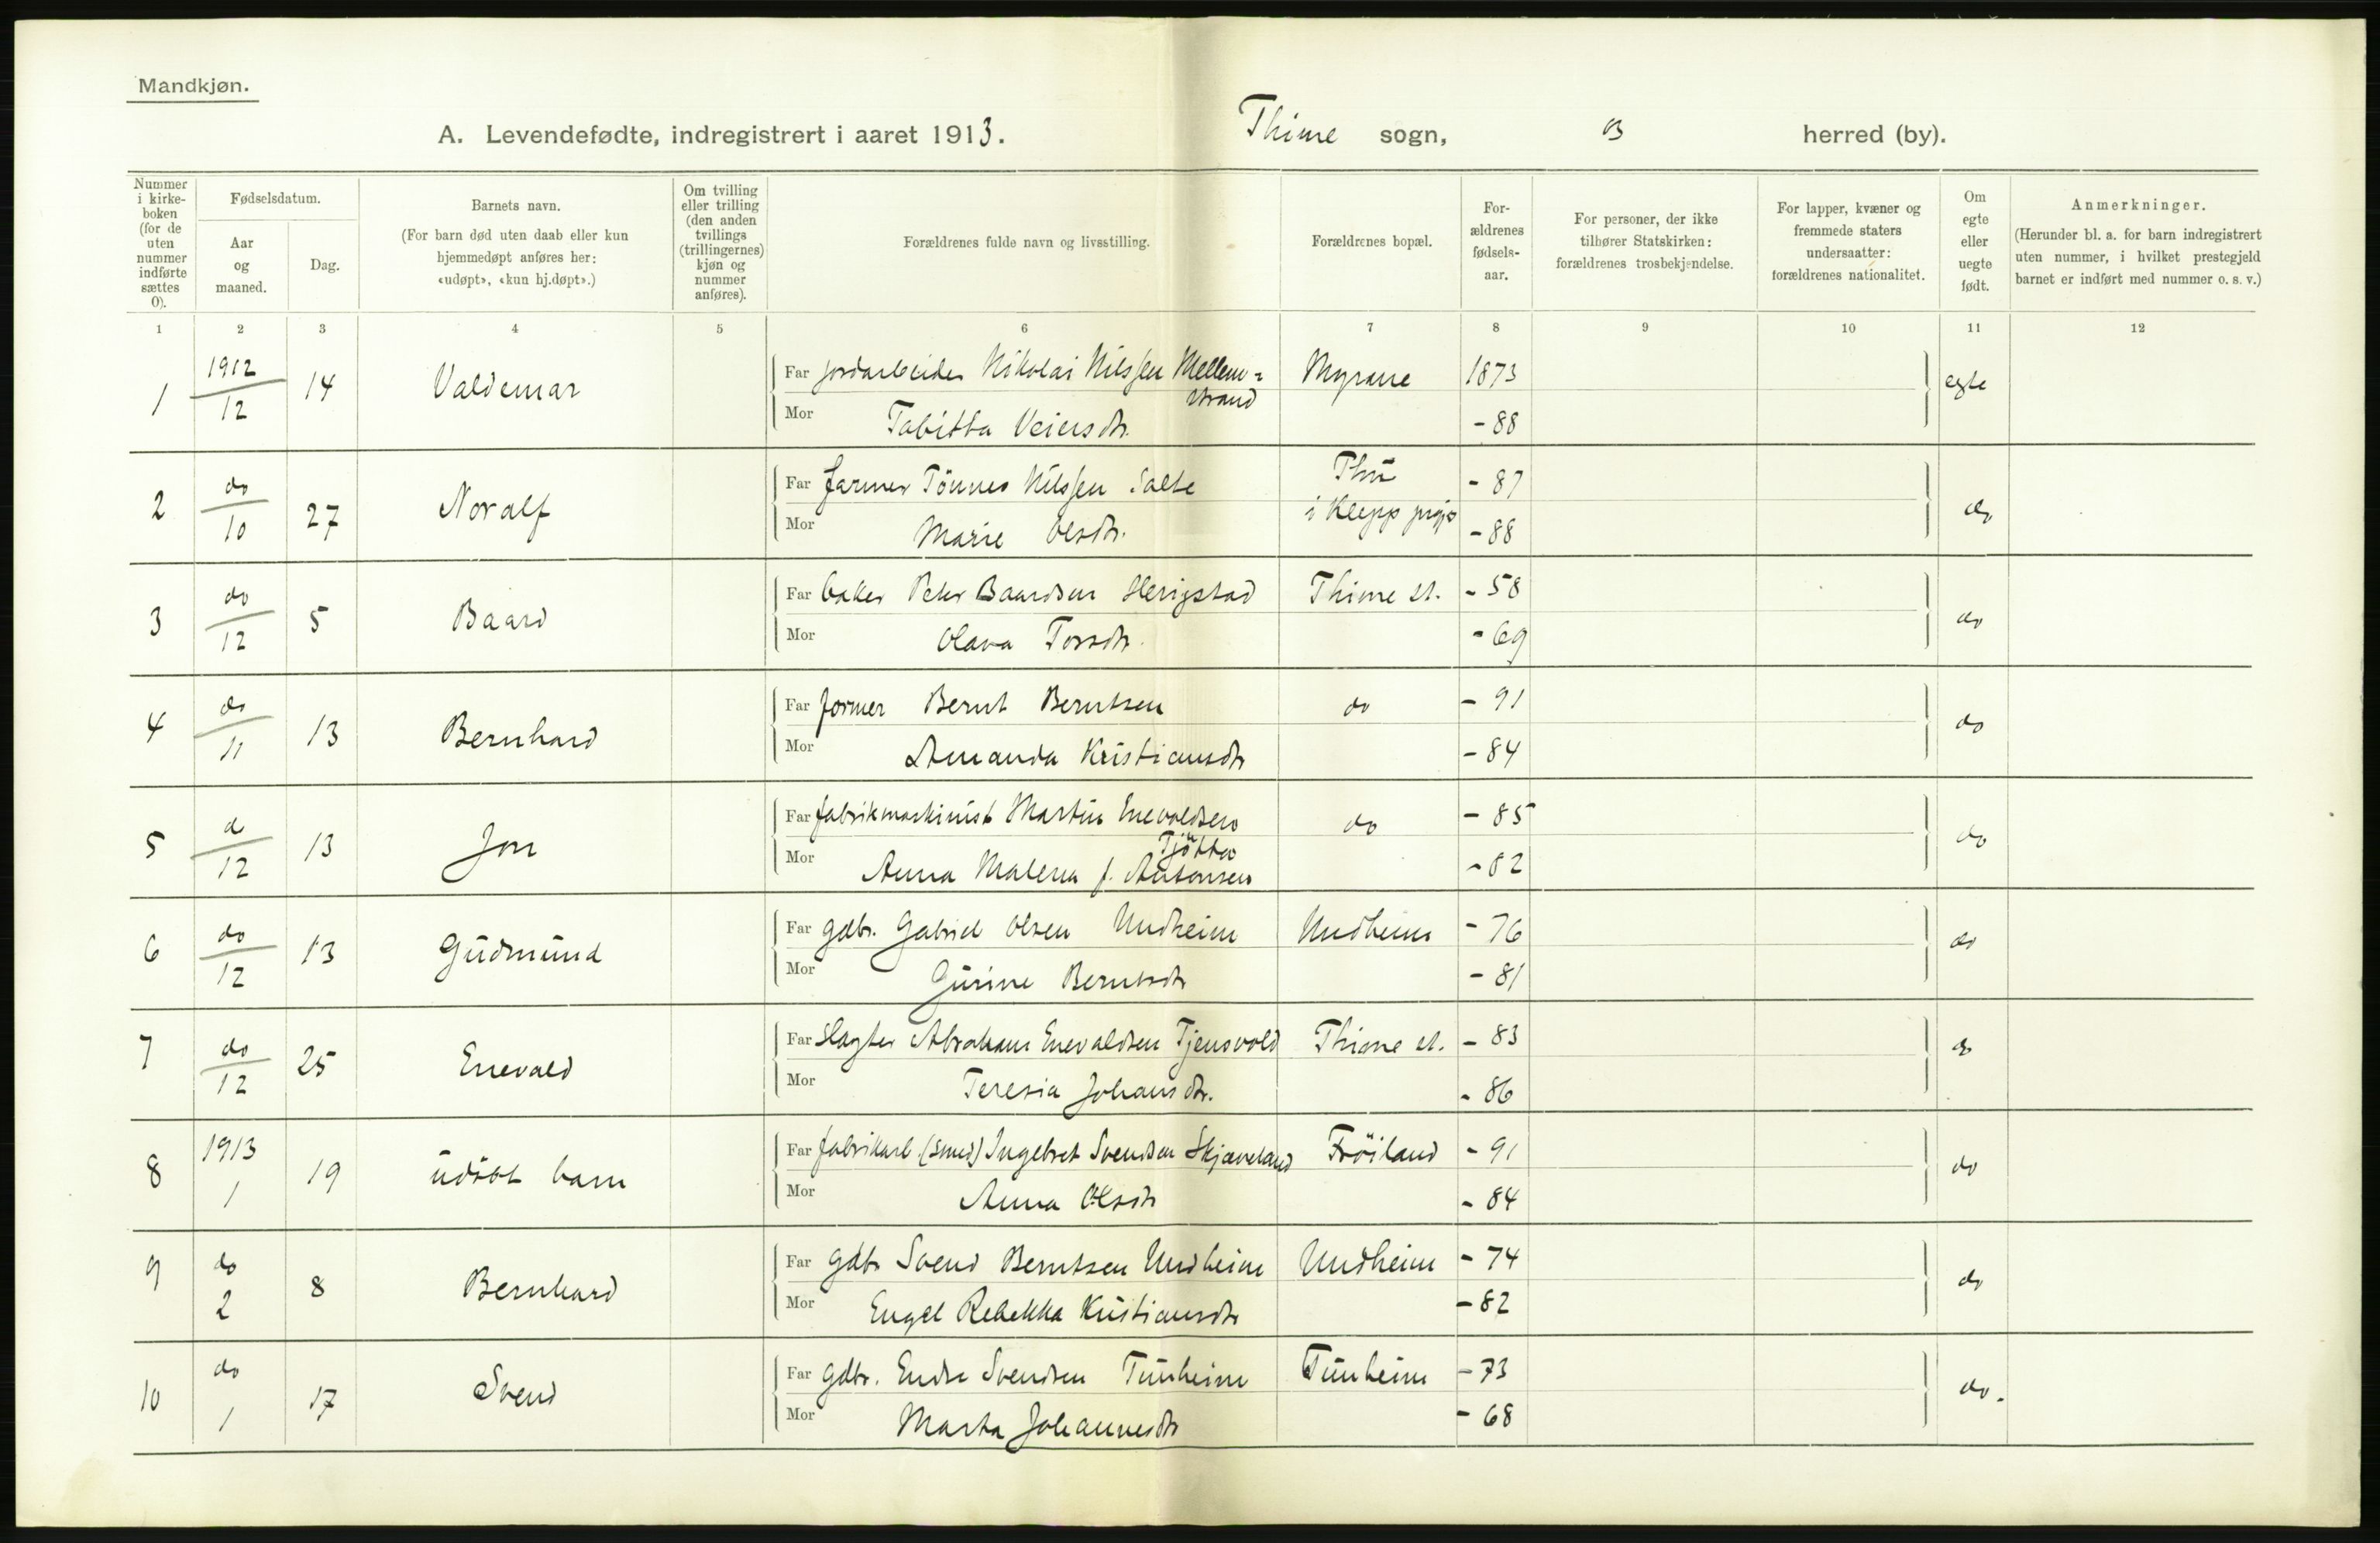 Mandkjøn.
A. Levendefødte, indregistrert i aaret 1913. Thime sogn, herred (by).
Nummer i kirke-boken (for de uten nummer indførte sættes 0).
Fødselsdatum.
Aar og maaned.
Dag.
Barnets navn.
(For barn død uten daab eller kun hjemmedøpt anføres her: «udøpt», «kun hj.døpt».)
Om tvilling eller trilling (den anden tvillings (trillingernes) kjøn og nummer anføres).
Forældrenes fulde navn og livsstilling.
Forældrenes bopæl.
For-ældrenes fødsels-aar.
For personer, der ikke tilhører Statskirken: forældrenes trosbekjendelse.
For lapper, kvæner og fremmede staters undersaatter: forældrenes nationalitet.
Om egte eller uegte født.
Anmerkninger.
(Herunder bl. a. for barn indregistrert uten nummer, i hvilket prestegjeld barnet er indført med nummer o. s. v.)
1 2 3 4 5 6 7 8 9 10 11 12
1 1912/12 14 Valdemar Far jordarbeider Nikolai Nilssen Mellem= Myrane 1873 egte
strand
Mor Tabitta Veiersdtr. - 88
2 do/10 27 Noralf Far farmer Tönnes Nilssen Salte Thu - 87 do
i Klepp prgj.
Mor Marie Olsdtr. - 88
3 do/12 5 Baard Far baker Peder Baardsen Herigstad Thime st. - 58 do
Mor Olava Torsdtr. - 69
4 do/11 13 Bernhard Far former Bernt Berntsen do - 91 do
Mor Amanda Kristiansdtr - 84
5 do/12 13 Jon Far fabrikmaskinist Martin Enevoldsen do - 85 do
Tjötta
Mor Anna Malena f. Antonsen - 82
6 do/12 13 Gudmund Far gdbr. Gabriel Olsen Undheim Undheim - 76 do
Mor Gurine Berntsdtr - 81
7 do/12 25 Enevald Far Slagter Abraham Enevaldsen Tjensvold Thime st. - 83 do
Mor Teresia Johansdtr. - 86
8 1913 1 19 udöbt barn Far fabrikarb. (smed) Ingebret Svendsen Skjæveland Fröiland - 91 do
Mor Anna Olsdtr - 84
9 do 2 8 Bernhard Far gdbr Svend Berntsen Undheim Undheim - 74 do
Mor Engel Rebekka Kristiansdtr - 82
10 do 1 17 Svend Far gdbr. Endre Svendsen Tunheim Tunheim - 73 do.
Mor Marta Johannesdtr - 68